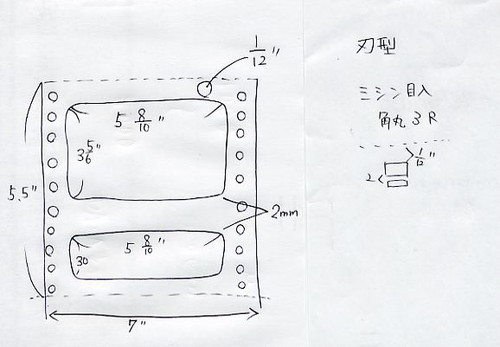 1/12"
5 8/10"
3 5/6"
5.5"
2mm
5 8/10"
30
7"
刃型
ミシン目入
角丸3R
1/12"
2